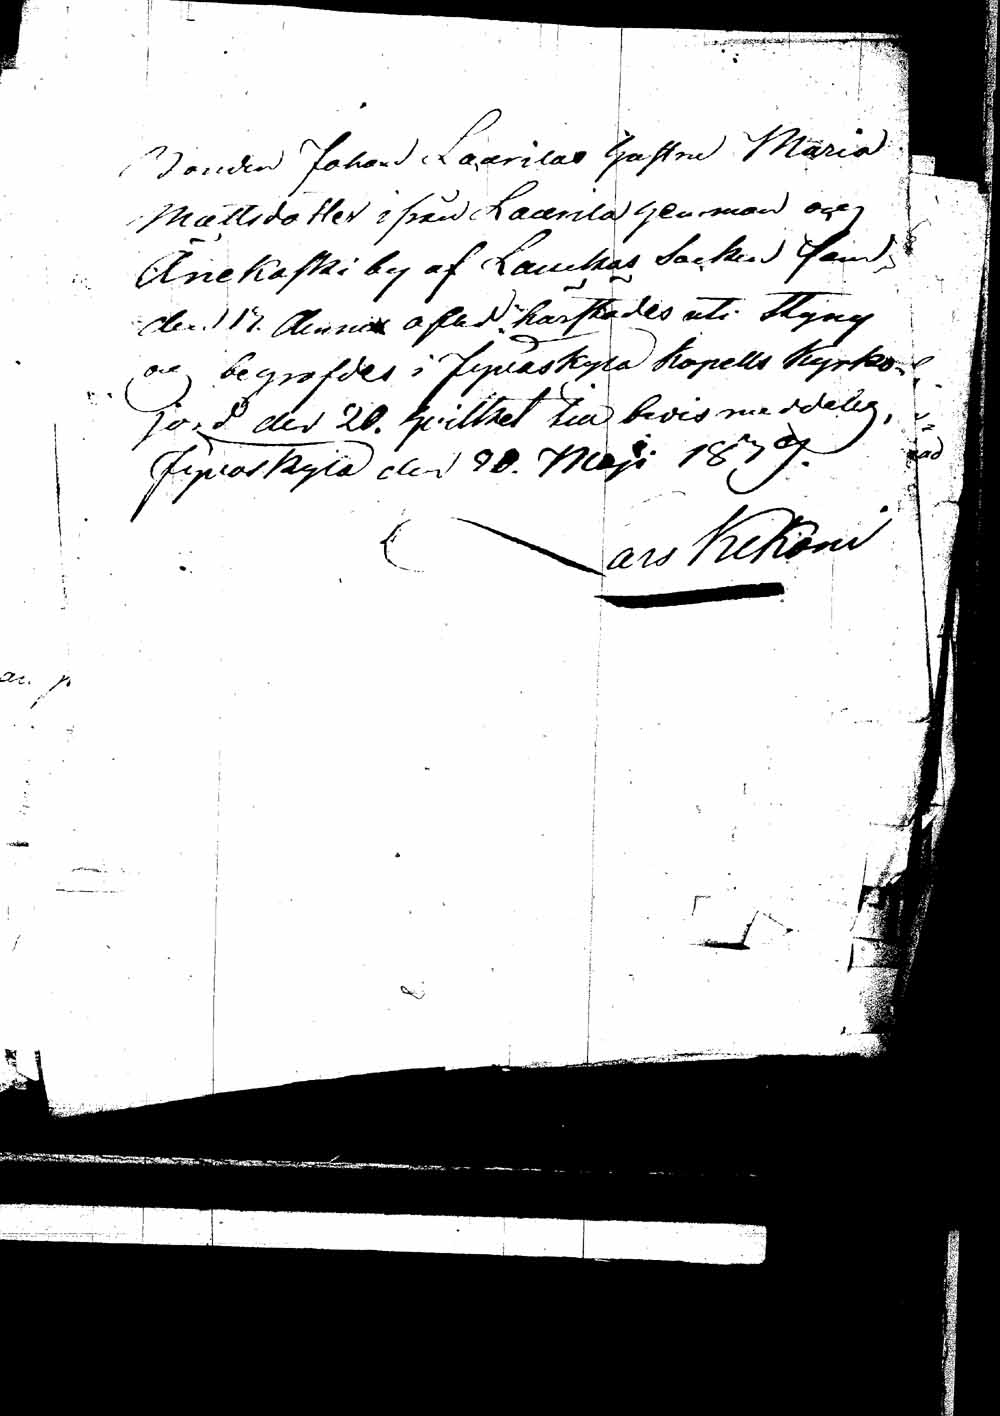 Bonden Johan Laurilas hustru Maria
Mattsdotter ifrån Laurila hemman och
Änekoski by af Laukas Socken som
den 17. dennes afled, kårstades uti Styny
och begrofdes i Jyväskylä Kapells Kyrko-
jord den 20. hvilket till bevis meddelas,
Jyväskylä den 20. Maji 1879.
Lars Kekoni